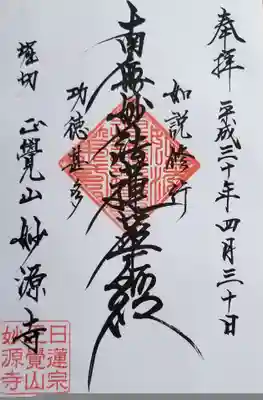 奉拝 平成三十年四月三十日
如説修行
南無妙法蓮華経
功徳甚多
堀切 正覺山 妙源寺
日蓮宗
正覺山
妙源寺